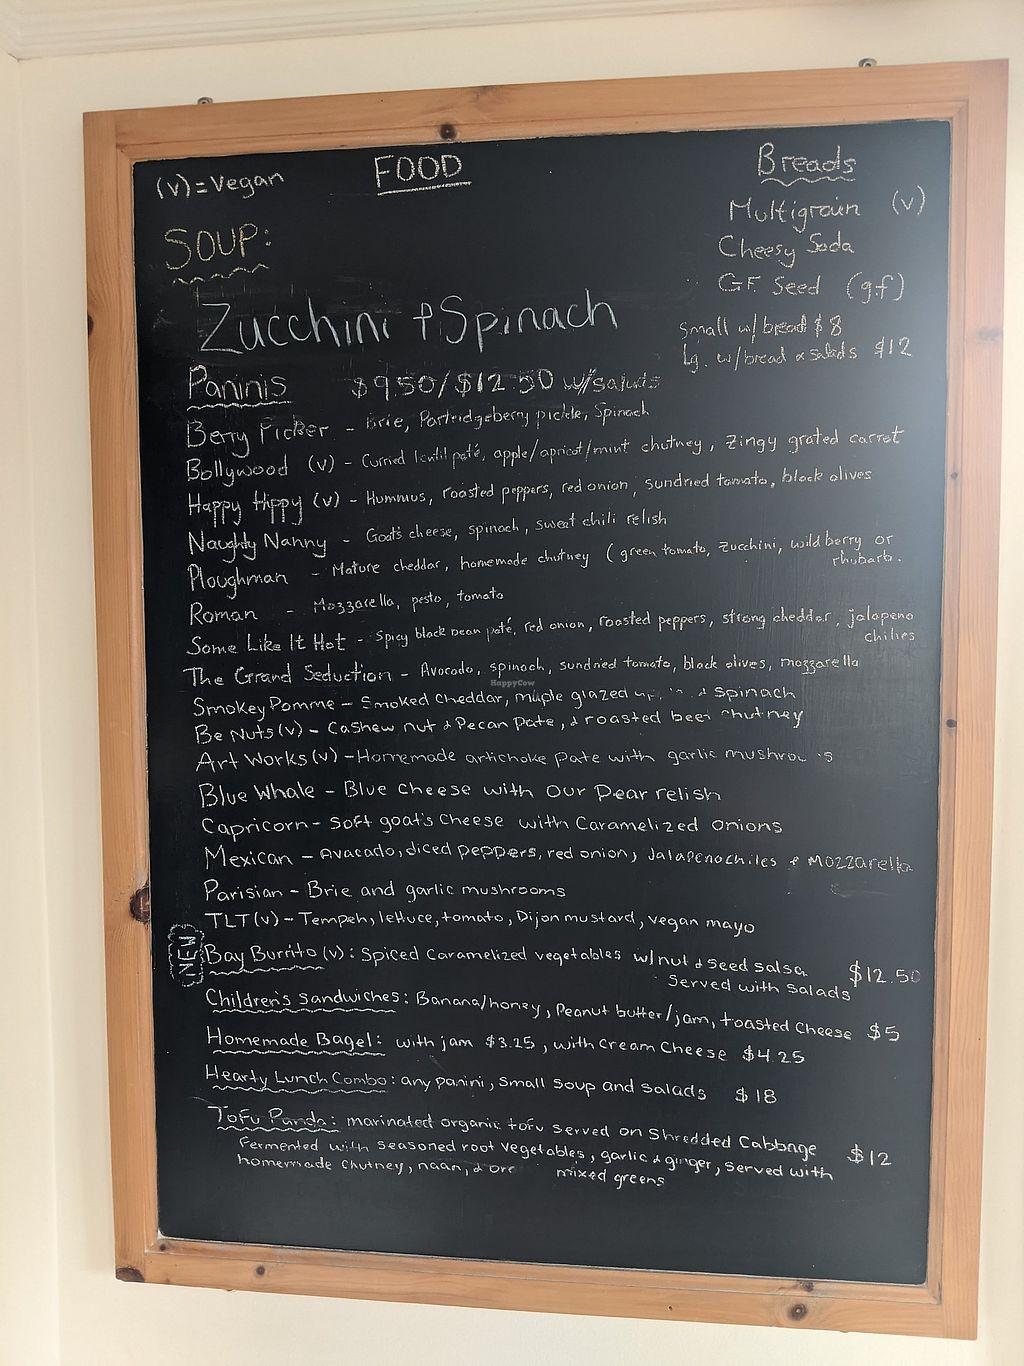 (v) = Vegan
FOOD
Breads
Multigrain (v)
Cheesy Soda
GF Seed (g.f)
SOUP:
Zucchini + Spinach
Small w/ bread $8
Lg. w/bread & salads $12
Paninis $9.50/$12.50 w/salads
Berry Picker - Brie, Partridgeberry pickle, Spinach
Bollywood (v) - Curried lentil paté, apple/apricot/mint chutney, zingy grated carrot
Happy Hippy (v) - Hummus, roasted peppers, red onion, sundried tomato, black olives
Naughty Nanny - Goat's cheese, spinach, sweet chili relish
Ploughman - Mature cheddar, homemade chutney (green tomato, zucchini, wild berry or
rhubarb.
Roman - Mozzarella, pesto, tomato
Some Like It Hot - Spicy black bean paté, red onion, roasted peppers, strong cheddar, jalapeno
chilies
The Grand Seduction - Avocado, spinach, sundried tomato, black olives, mozzarella
HappyCow
Smokey Pomme - Smoked Cheddar, maple glazed & spinach
Be Nuts (v) - Cashew nut & Pecan Pate, & roasted beet chutney
Art Works (v) - Homemade artichoke Pate with garlic
Blue Whale - Blue Cheese with Our Pear relish
Capricorn - Soft goat's Cheese with Caramelized Onions
Mexican - Avacado, diced peppers, red onion, Jalapeno chiles & Mozzarella
Parisian - Brie and garlic mushrooms
TLT (v) - Tempeh, lettuce, tomato, Dijon mustard, vegan mayo
NEW Bay Burrito (v): Spiced Caramelized vegetables w/nut & seed salsa $12.50
Served with salads
Children's Sandwiches: Banana/honey, Peanut butter/jam, toasted Cheese $5
Homemade Bagel: with jam $3.25, with Cream Cheese $4.25
Hearty Lunch Combo: any panini, small soup and salads $18
Tofu Panda: marinated organic tofu served on Shredded Cabbbage $12
Fermented with seasoned root vegetables, garlic & ginger, served with
homemade chutney, naan, & mixed greens